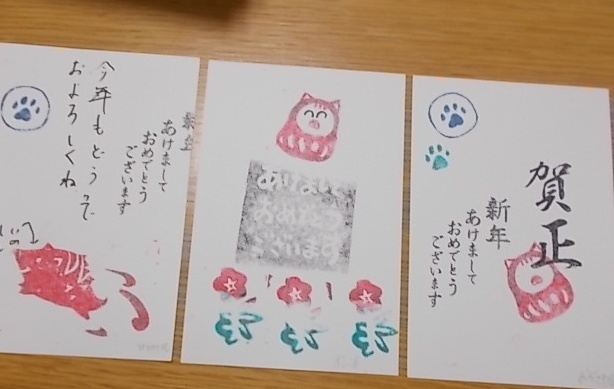 新年
あけまして
おめでとう
ございます
今年もどうぞ
およろしくね
あけまして
おめでとう
ございます
賀正
新年
あけまして
おめでとう
ございます